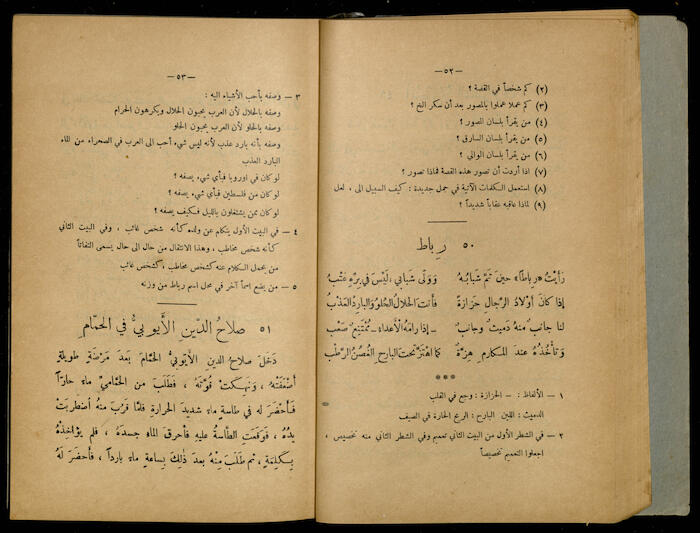 — ٥٢ —
(٢) كم شخصاً في القصة ؟
(٣) كم عملا عملوا بالمصور بعد أن سكر الخ ؟
(٤) من يقرأ بلسان المصور ؟
(٥) من يقرأ بلسان السارق ؟
(٦) من يقرأ بلسان الوالي ؟
(٧) اذا أردت أن تصور هذه القصة فماذا تصور ؟
(٨) استعمل الكلمات الآتية في جمل جديدة : كيف السبيل الى ، لعل
(٩) لماذا عاقبه عقاباً شديداً ؟
٥٠ رباط
رَأَيْتُ «رباطاً» حينَ تَمَّ شَبابُهُ وَوَلَّى شَبابي ، لَيْسَ في بِرِّهِ عَتْبُ
إذا كانَ أوْلادُ الرِّجالِ حَزازةً فأنتَ الحَلالُ الحُلوُ والبارِدُ العَذْبُ
لنا جانبٌ منهُ دَميثٌ وجانبٌ – إذا رامَهُ الأعداء – مُمْتَنِعٌ صَعْبُ
وتَأخُذُهُ عندَ المكارمِ هِزَّةٌ كما اهْتَزَّ تحتَ البارحِ الغُصُنُ الرَّطْبُ
***
١ – الألفاظ : – الحزازة : وجع في القلب
الدميث : اللين البارح : الريح الحارة في الصيف
٢ – في الشطر الأول من البيت الثاني تعميم وفي الشطر الثاني منه تخصيص ،
اجعلوا التعميم تخصيصاً
— ٥٣ —
٣ – وصفه بأحب الأشياء اليه :
وصفه بالحلال لأن العرب يحبون الحلال ويكرهون الحرام
وصفه بالحلو لأن العرب يحبون الحلو
وصفه بأنه بارد عذب لأنه ليس شيء أحب الى العرب في الصحراء من الماء
البارد العذب
لو كان في اوروبا فبأي شيء يصفه ؟
لو كان من فلسطين فبأي شيء يصفه ؟
لو كان ممن يشتغلون بالليل فكيف يصفه ؟
٤ – في البيت الأول يتكلم عن ولده كأنه شخص غائب ، وفي البيت الثاني
كأنه شخص مخاطب ، وهذا الانتقال من حال الى حال يسمى التفاتاً
من يجعل الكلام عنه كشخص مخاطب ، كشخص غائب
٥ – من يضع اسماً آخر في محل اسم رباط من وزنه
٥١ صلاحُ الدّينِ الأيّوبيُّ في الحمّامِ
دَخَلَ صلاحُ الدينِ الأيوبيُّ الحَمّامَ بعدَ مَرْضةٍ طويلةٍ
أضْعَفَتْهُ ، ونَهِكَتْ قُوَّتَهُ ، فَطَلَبَ من الحمّاميِّ ماءً حارّاً
فَأحْضَرَ له في طاسةٍ ماءً شديدَ الحرارةِ فلمّا قَرُبَ منهُ اضْطَرَبَتْ
يَدُهُ ، فوقَعَتِ الطّاسةُ عليهِ فأحرقَ الماءُ جسدَهُ ، فلم يؤاخِذْهُ
بِكَلِمةٍ ، ثم طَلَبَ مِنْهُ بعدَ ذٰلِكَ بساعةٍ ماءً بارداً ، فأحضَرَ لَهُ